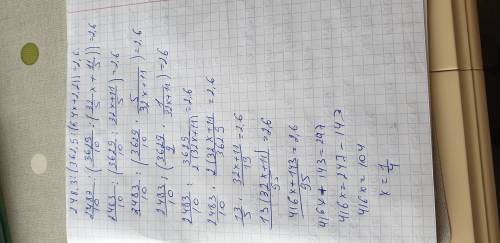 248,3:(362,9:(6,4x+2,2))=2,6
2483/10 : (3629/10 : (32/5 x + 11/5)) = 2,6
2483/10 : (3629/10 : (32x+11)/5) = 2,6
2483/10 : (3629/10 · 5/(32x+11)) = 2,6
2483/10 : (3629/2 · 1/(32x+11)) = 2,6
2483/10 : 3629/(2(32x+11)) = 2,6
2483/10 · 2(32x+11)/3629 = 2,6
13/5 · (32x+11)/19 = 2,6
13(32x+11)/95 = 2,6
(416x+143)/95 = 2,6
416x+143=247
416x=247-143
416x=104
x=1/4